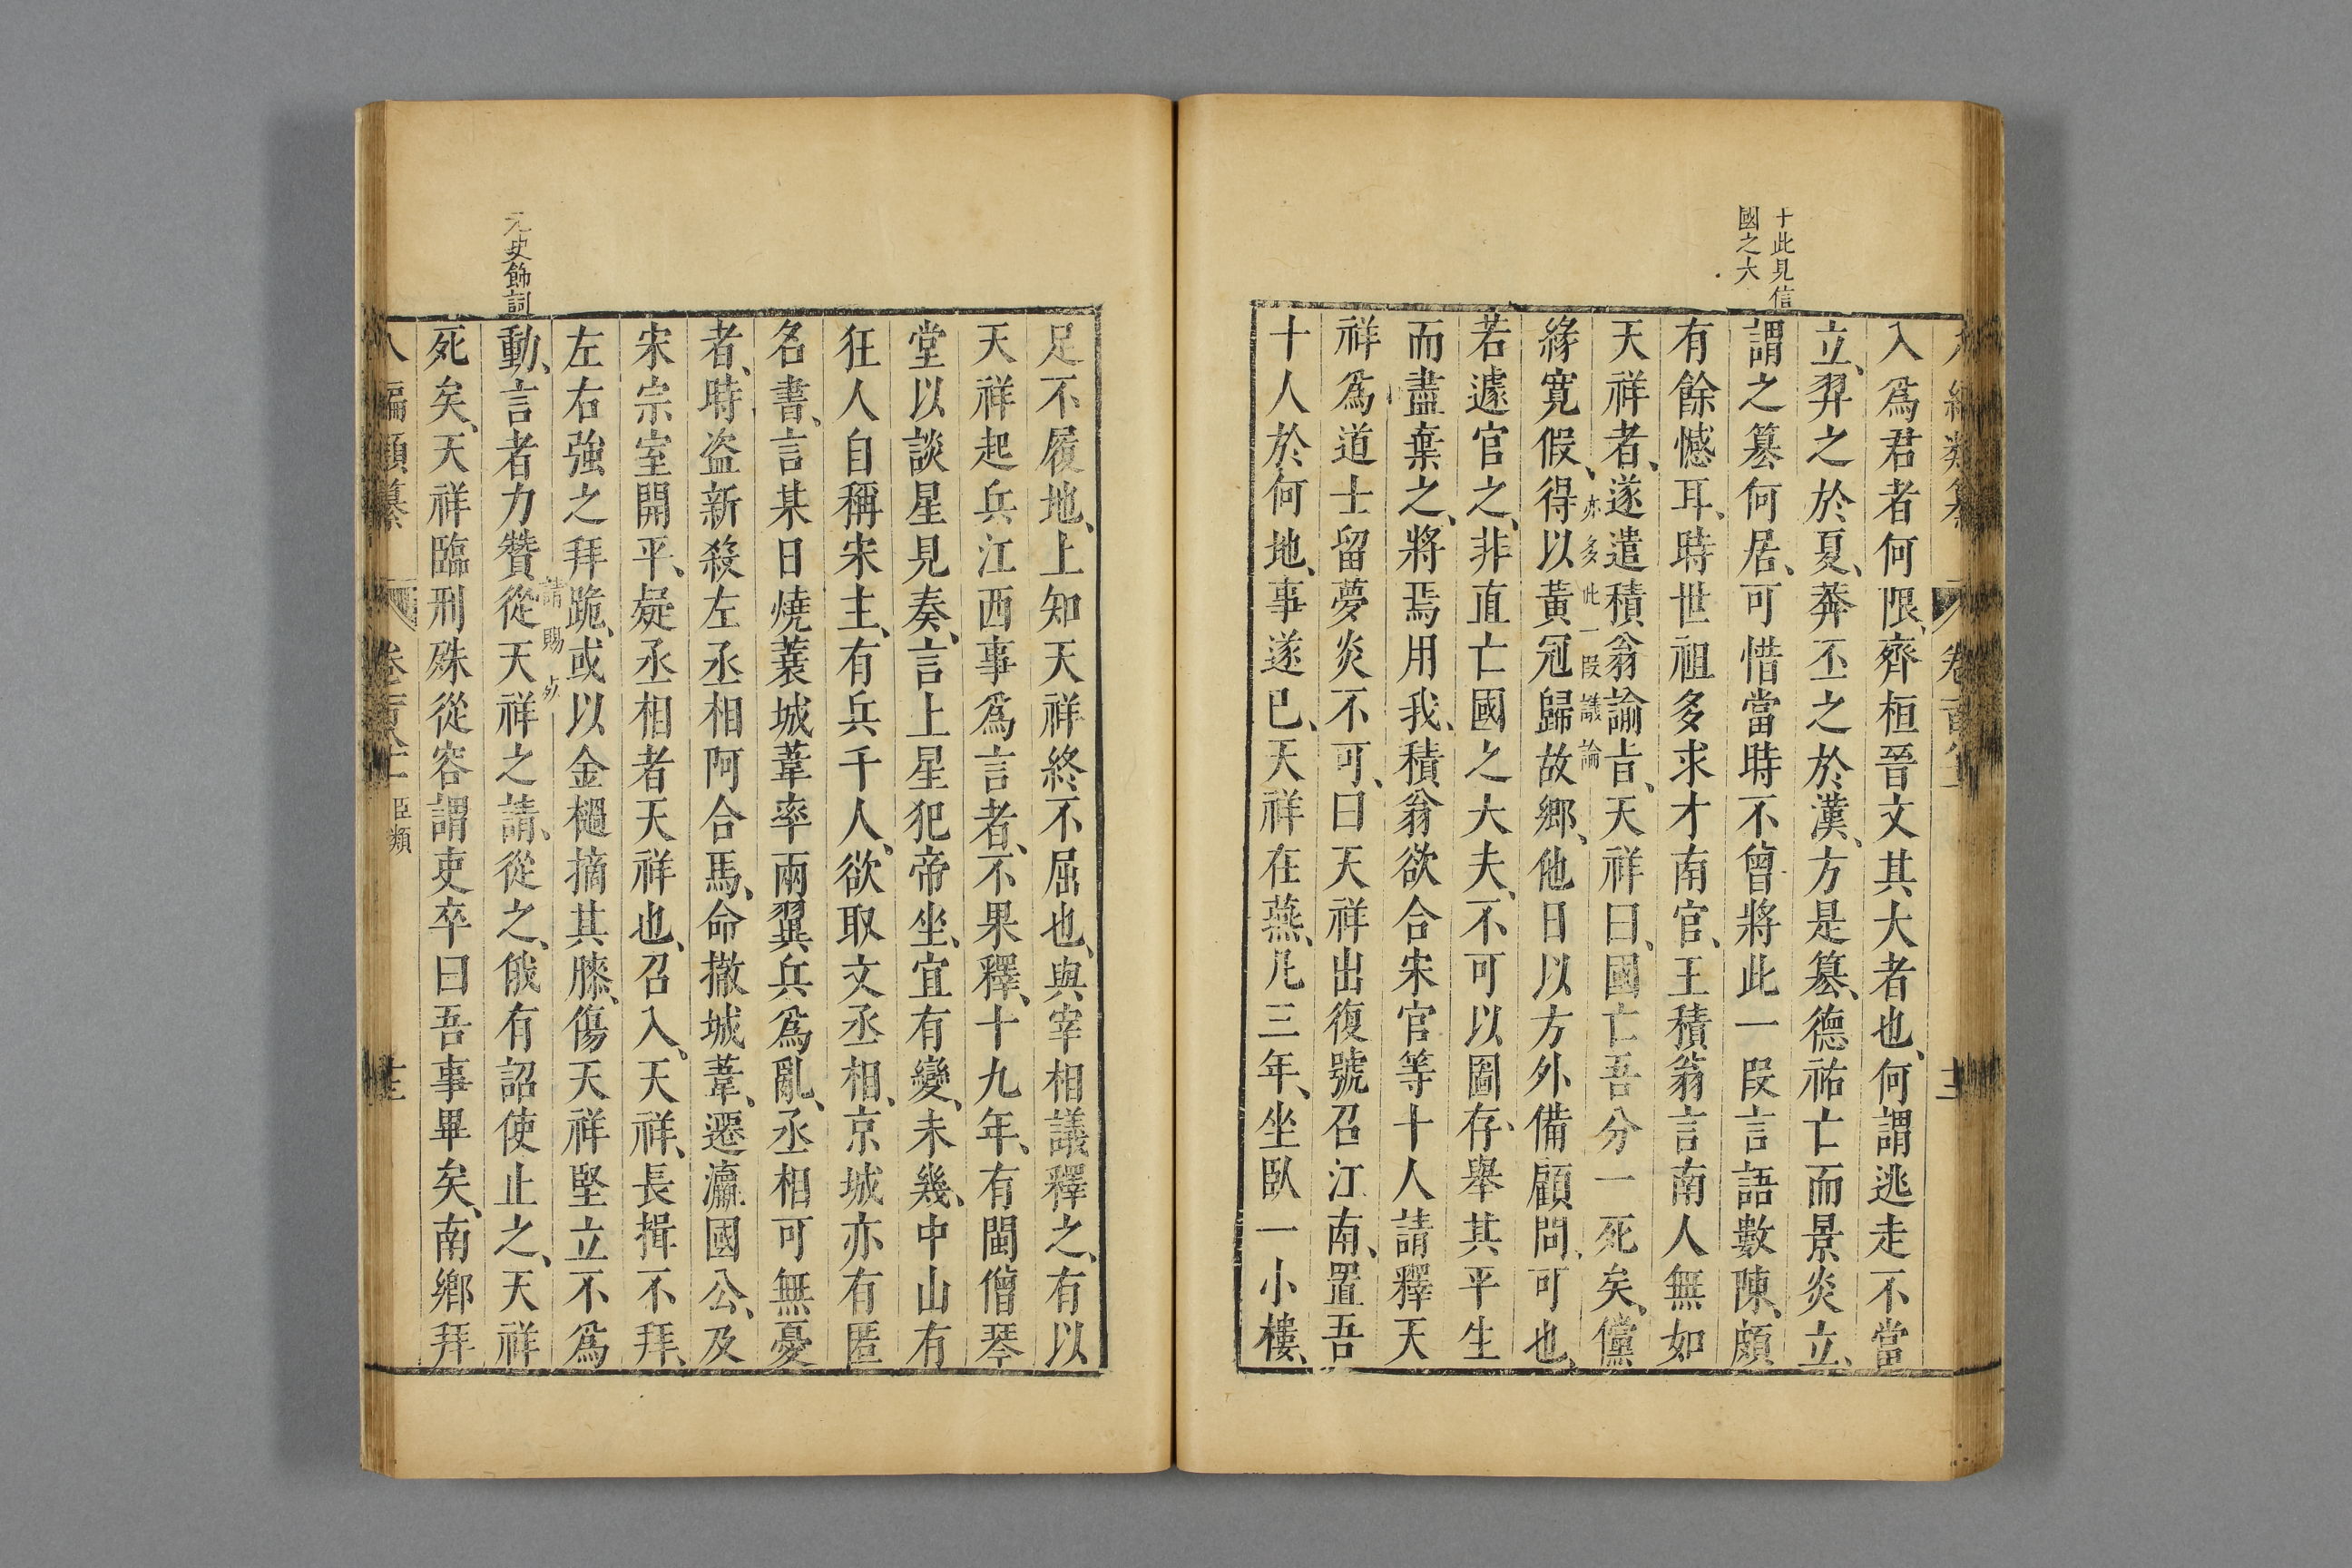 于此見信
國之大
入爲君者何限、齊桓晉文其大者也、何謂逃走不當
立、羿之於夏、莽丕之於漢、方是篡、德祐亡而景炎立、
謂之篡何居、可惜當時不曾將此一段言語數陳、頗
有餘憾耳、時世祖多求才南官、王積翁言南人無如
天祥者、遂遣積翁諭旨、天祥曰、國亡吾分一死矣、儻
亦多此一段議論
緣寬假、得以黃冠歸故鄉、他日以方外備顧問、可也、
若遽官之、非直亡國之大夫、不可以圖存、舉其平生
而盡棄之、將焉用我、積翁欲合宋官等十人請釋天
祥爲道士留夢炎不可、曰天祥出復號召江南、置吾
十人於何地、事遂已、天祥在燕、凡三年、坐臥一小樓、
足不履地、上知天祥終不屈也、與宰相議釋之、有以
天祥起兵江西事爲言者、不果釋、十九年、有閩僧琴
堂以談星見奏、言上星犯帝坐、宜有變、未幾、中山有
狂人自稱宋主、有兵千人、欲取文丞相、京城亦有匿
名書、言某日燒蓑城葦率兩翼兵爲亂、丞相可無憂
者、時盗新殺左丞相阿合馬、命撤城葦、遷瀛國公、及
宋宗室開平、疑丞相者天祥也、召入、天祥、長揖不拜、
左右強之拜跪、或以金檛摘其膝、傷天祥堅立不爲
請賜死
元史飾詞
動、言者力贊從天祥之請、從之、俄有詔使止之、天祥
死矣、天祥臨刑殊從容謂吏卒曰吾事畢矣、南鄉拜
八編類纂
臣類